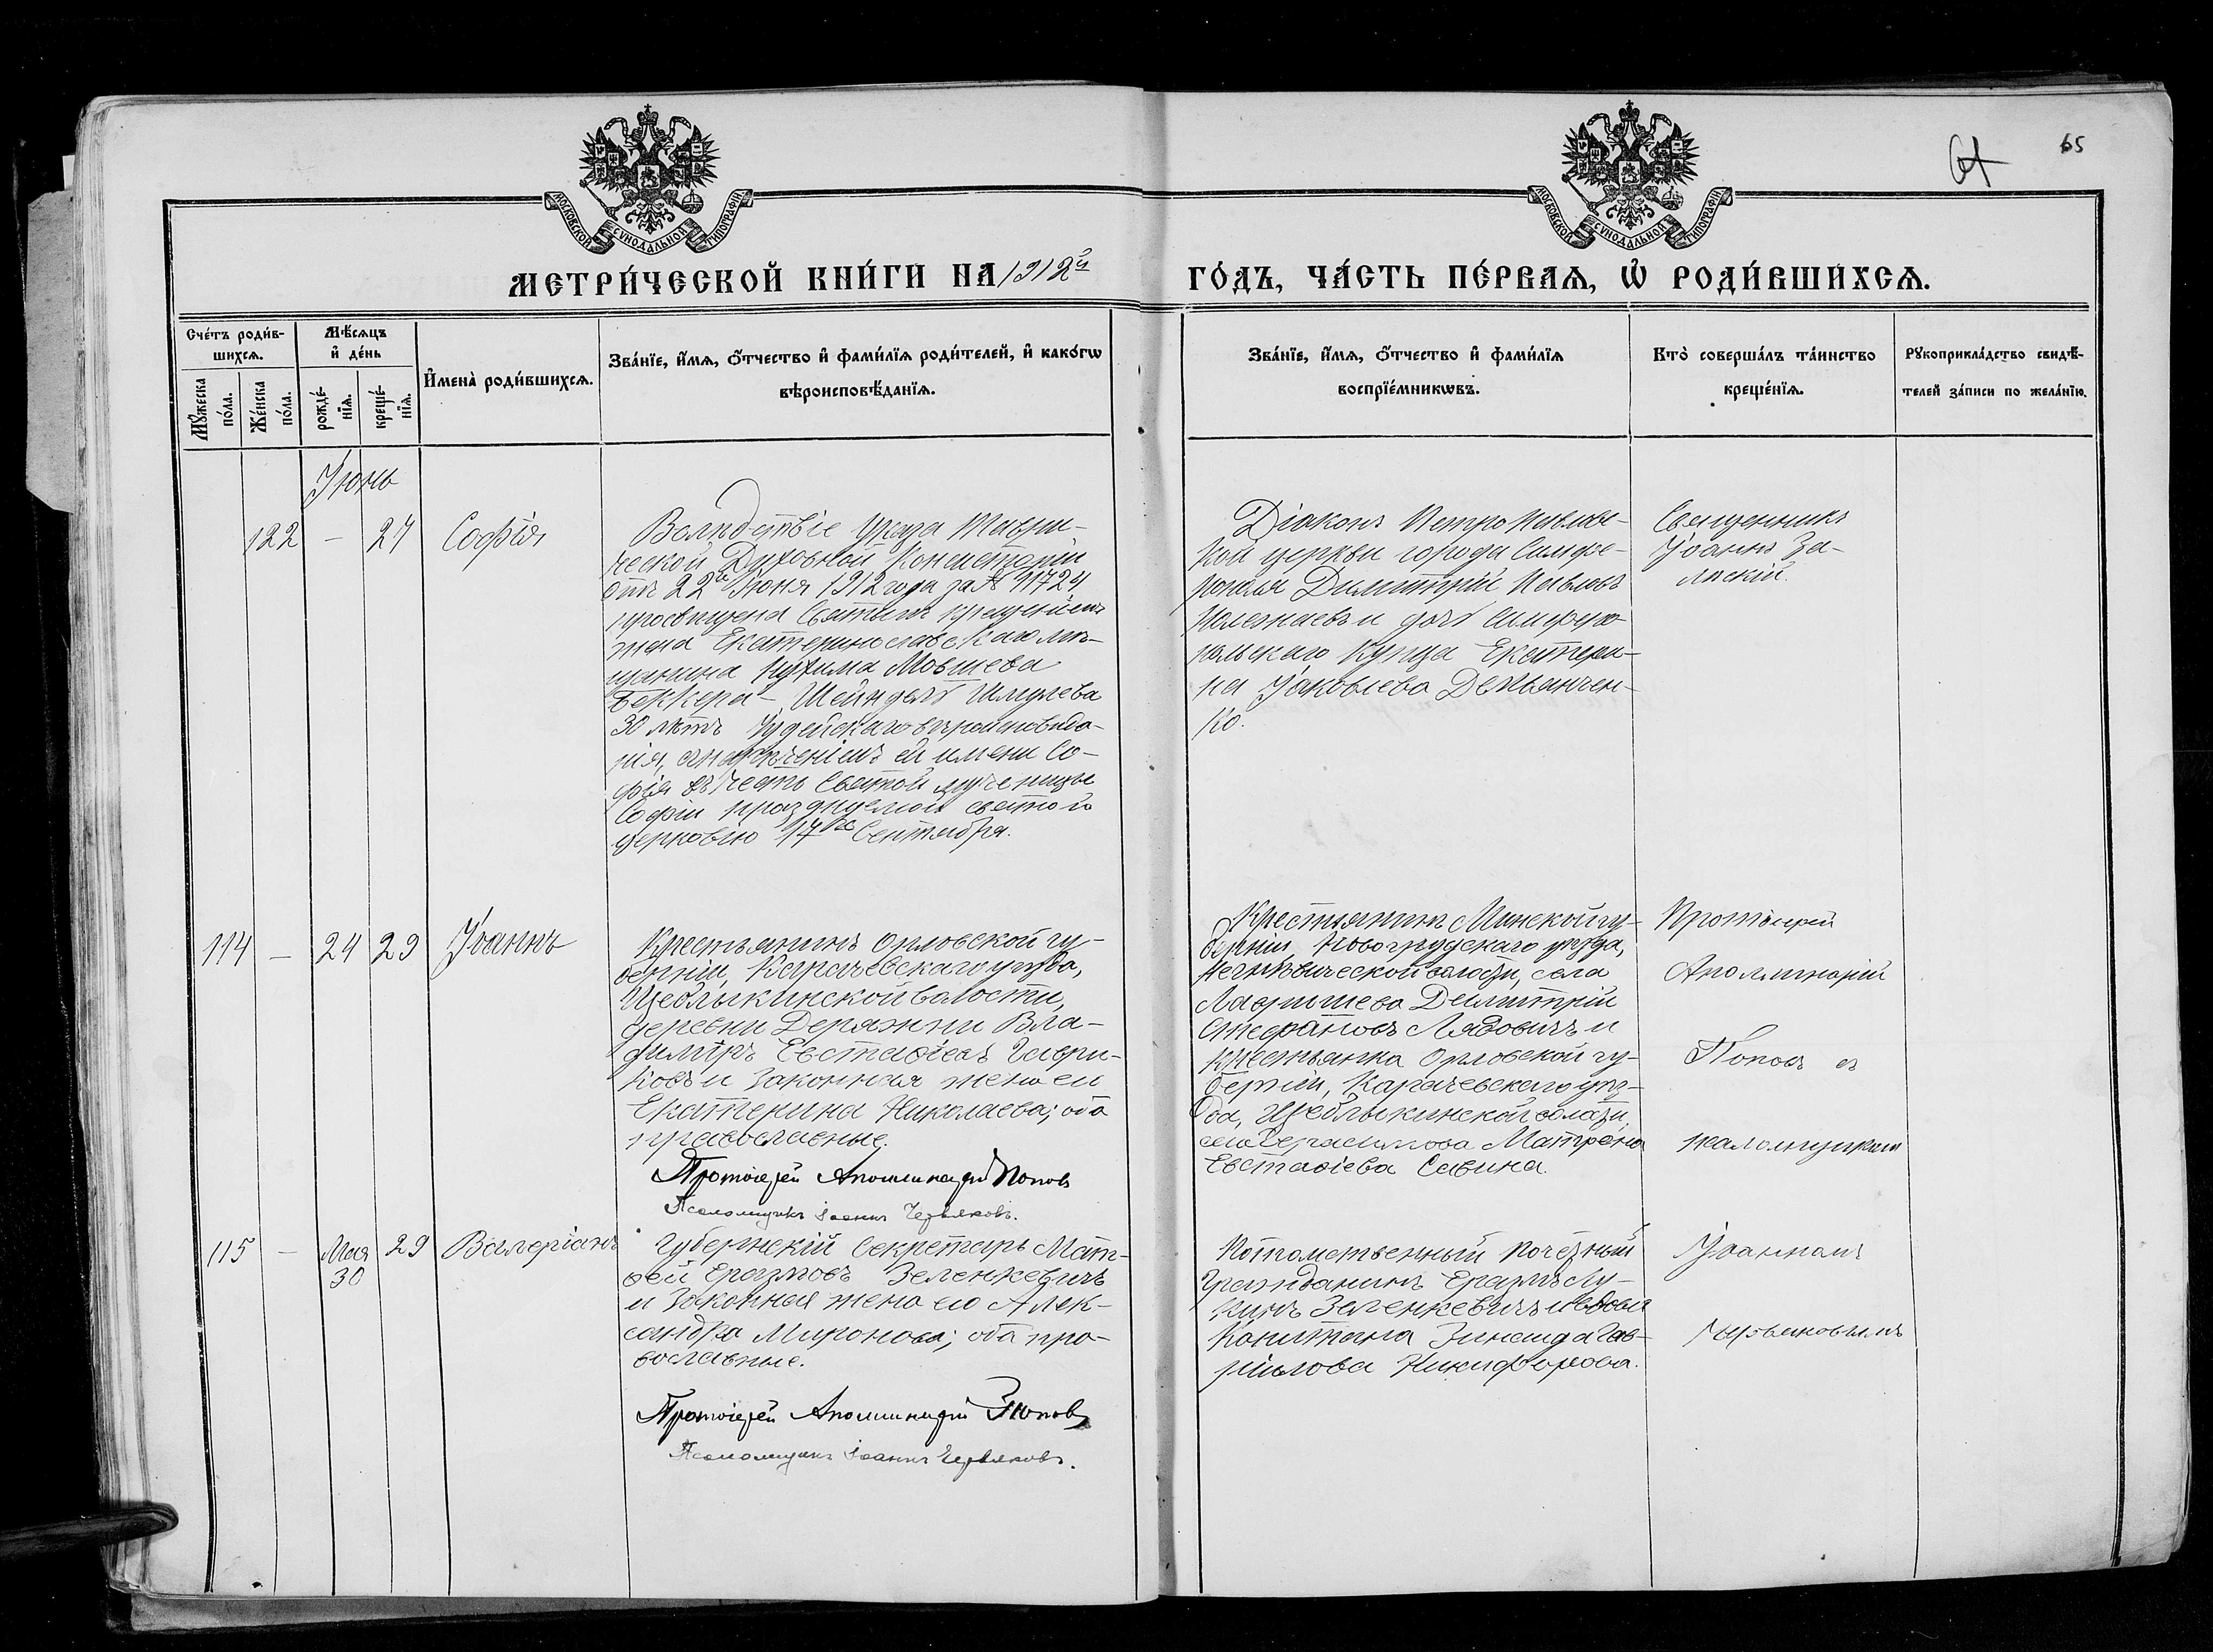 65
МОСКОВСКОЙ СУНОДАЛЬНОЙ ТИПОГРАФІИ
МОСКОВСКОЙ СУНОДАЛЬНОЙ ТИПОГРАФІИ
МЕТРИ́ЧЕСКОЙ КНИ́ГИ НА 1912й
ГО́ДЪ, ЧА́СТЬ ПЕ́РВАѦ, Ѡ҆ РОДИ́ВШИХСѦ.
Сче́тъ роди́в-
шихсѧ.
Мꙋжеска по́ла.
Же́нска по́ла.
Мѣ́сѧцъ
и҆ де́нь
рожде́-
нїѧ.
креще́-
нїѧ.
И҆мена̀ роди́вшихсѧ.
Зва́нїе, и҆́мѧ, ѻ҆́тчество и҆ фами́лїѧ роди́телей, и҆ како́гѡ
вѣроисповѣ́данїѧ.
Зва́нїе, и҆́мѧ, ѻ҆́тчество и҆ фами́лїѧ
воспрїе́мникѡвъ.
Кто̀ соверша́лъ та́инство
креще́нїѧ.
Рꙋкоприкла́дство свидѣ́-
телей за́писи по жела́нїю.
Іюнь
122 — 27 Софія
Вслѣдствіе Указа Таври-
ческой Духовной Консисторіи
отъ 22го Іюня 1912 года за №
просвѣщена Святымъ крещеніемъ
жена Екатеринославскаго мѣ-
щанина Мовшева
Беккера — Шейндля Шмулева
30 лѣтъ Іудейскаго вѣроисповѣда-
нія, съ нареченіемъ ей имени Со-
фія въ честь Святой мученицы
Софіи празднуемой святой
церковію 17го Сентября.
Діаконъ Петропавлов-
кой церкви города Симфе-
рополя Димитрій Павловъ
Полежаевъ и дочь Симферо-
польскаго Купца Екатери-
на Іаковлева Демьянчен-
ко.
Священникъ
Іоаннъ За-
лескій.
114 — 24 29 Іоаннъ
Крестьянинъ Орловской гу-
берніи, Карачевскаго уѣзда,
Щеблыкинской волости,
деревни Деряжни Вла-
димiръ Евстафіевъ Гаври-
ковъ и законная жена его
Екатерина Николаева; оба
православные.
Протоіерей Аполлинарій Поповъ
Псаломщикъ Іоаннъ Червяковъ.
Крестьянинъ Минской гу-
берніи, Новогрудскаго уѣзда,
волости, села
Лавришева Димитрій
Стефановъ Лядовичъ и
крестьянка Орловской гу-
берніи, Карачевскаго уѣз-
да, Щеблыкинской волости,
села Герасимова Матрона
Евстафіева Савина.
Протоіерей
Аполлинарій
Поповъ съ
псаломщикомъ
115 — Мая
30 29 Валеріанъ
Губернскій Секретарь Мат-
фей Еразмовъ Зеленкевичъ
и законная жена его Алек-
сандра Миронова; оба пра-
вославные.
Протоіерей Аполлинарій Поповъ
Псаломщикъ Іоаннъ Червяковъ.
Потомственный почетный
гражданинъ Еразмъ Лу-
кинъ Зеленкевичъ и вдова
Капитана Зинаида Гав-
ріилова Никифорова.
Іоанномъ
Червяковымъ